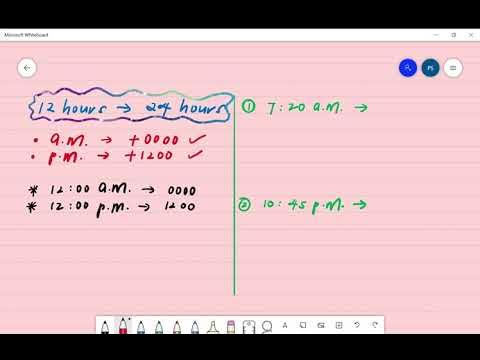 Microsoft Whiteboard
PS
12 hours → 24 hours
• a.m. → +0000 ✓
• p.m. → +1200 ✓
* 12:00 a.m. → 0000
* 12:00 p.m. → 1200
① 7:20 a.m. →
② 10:45 p.m. →
A